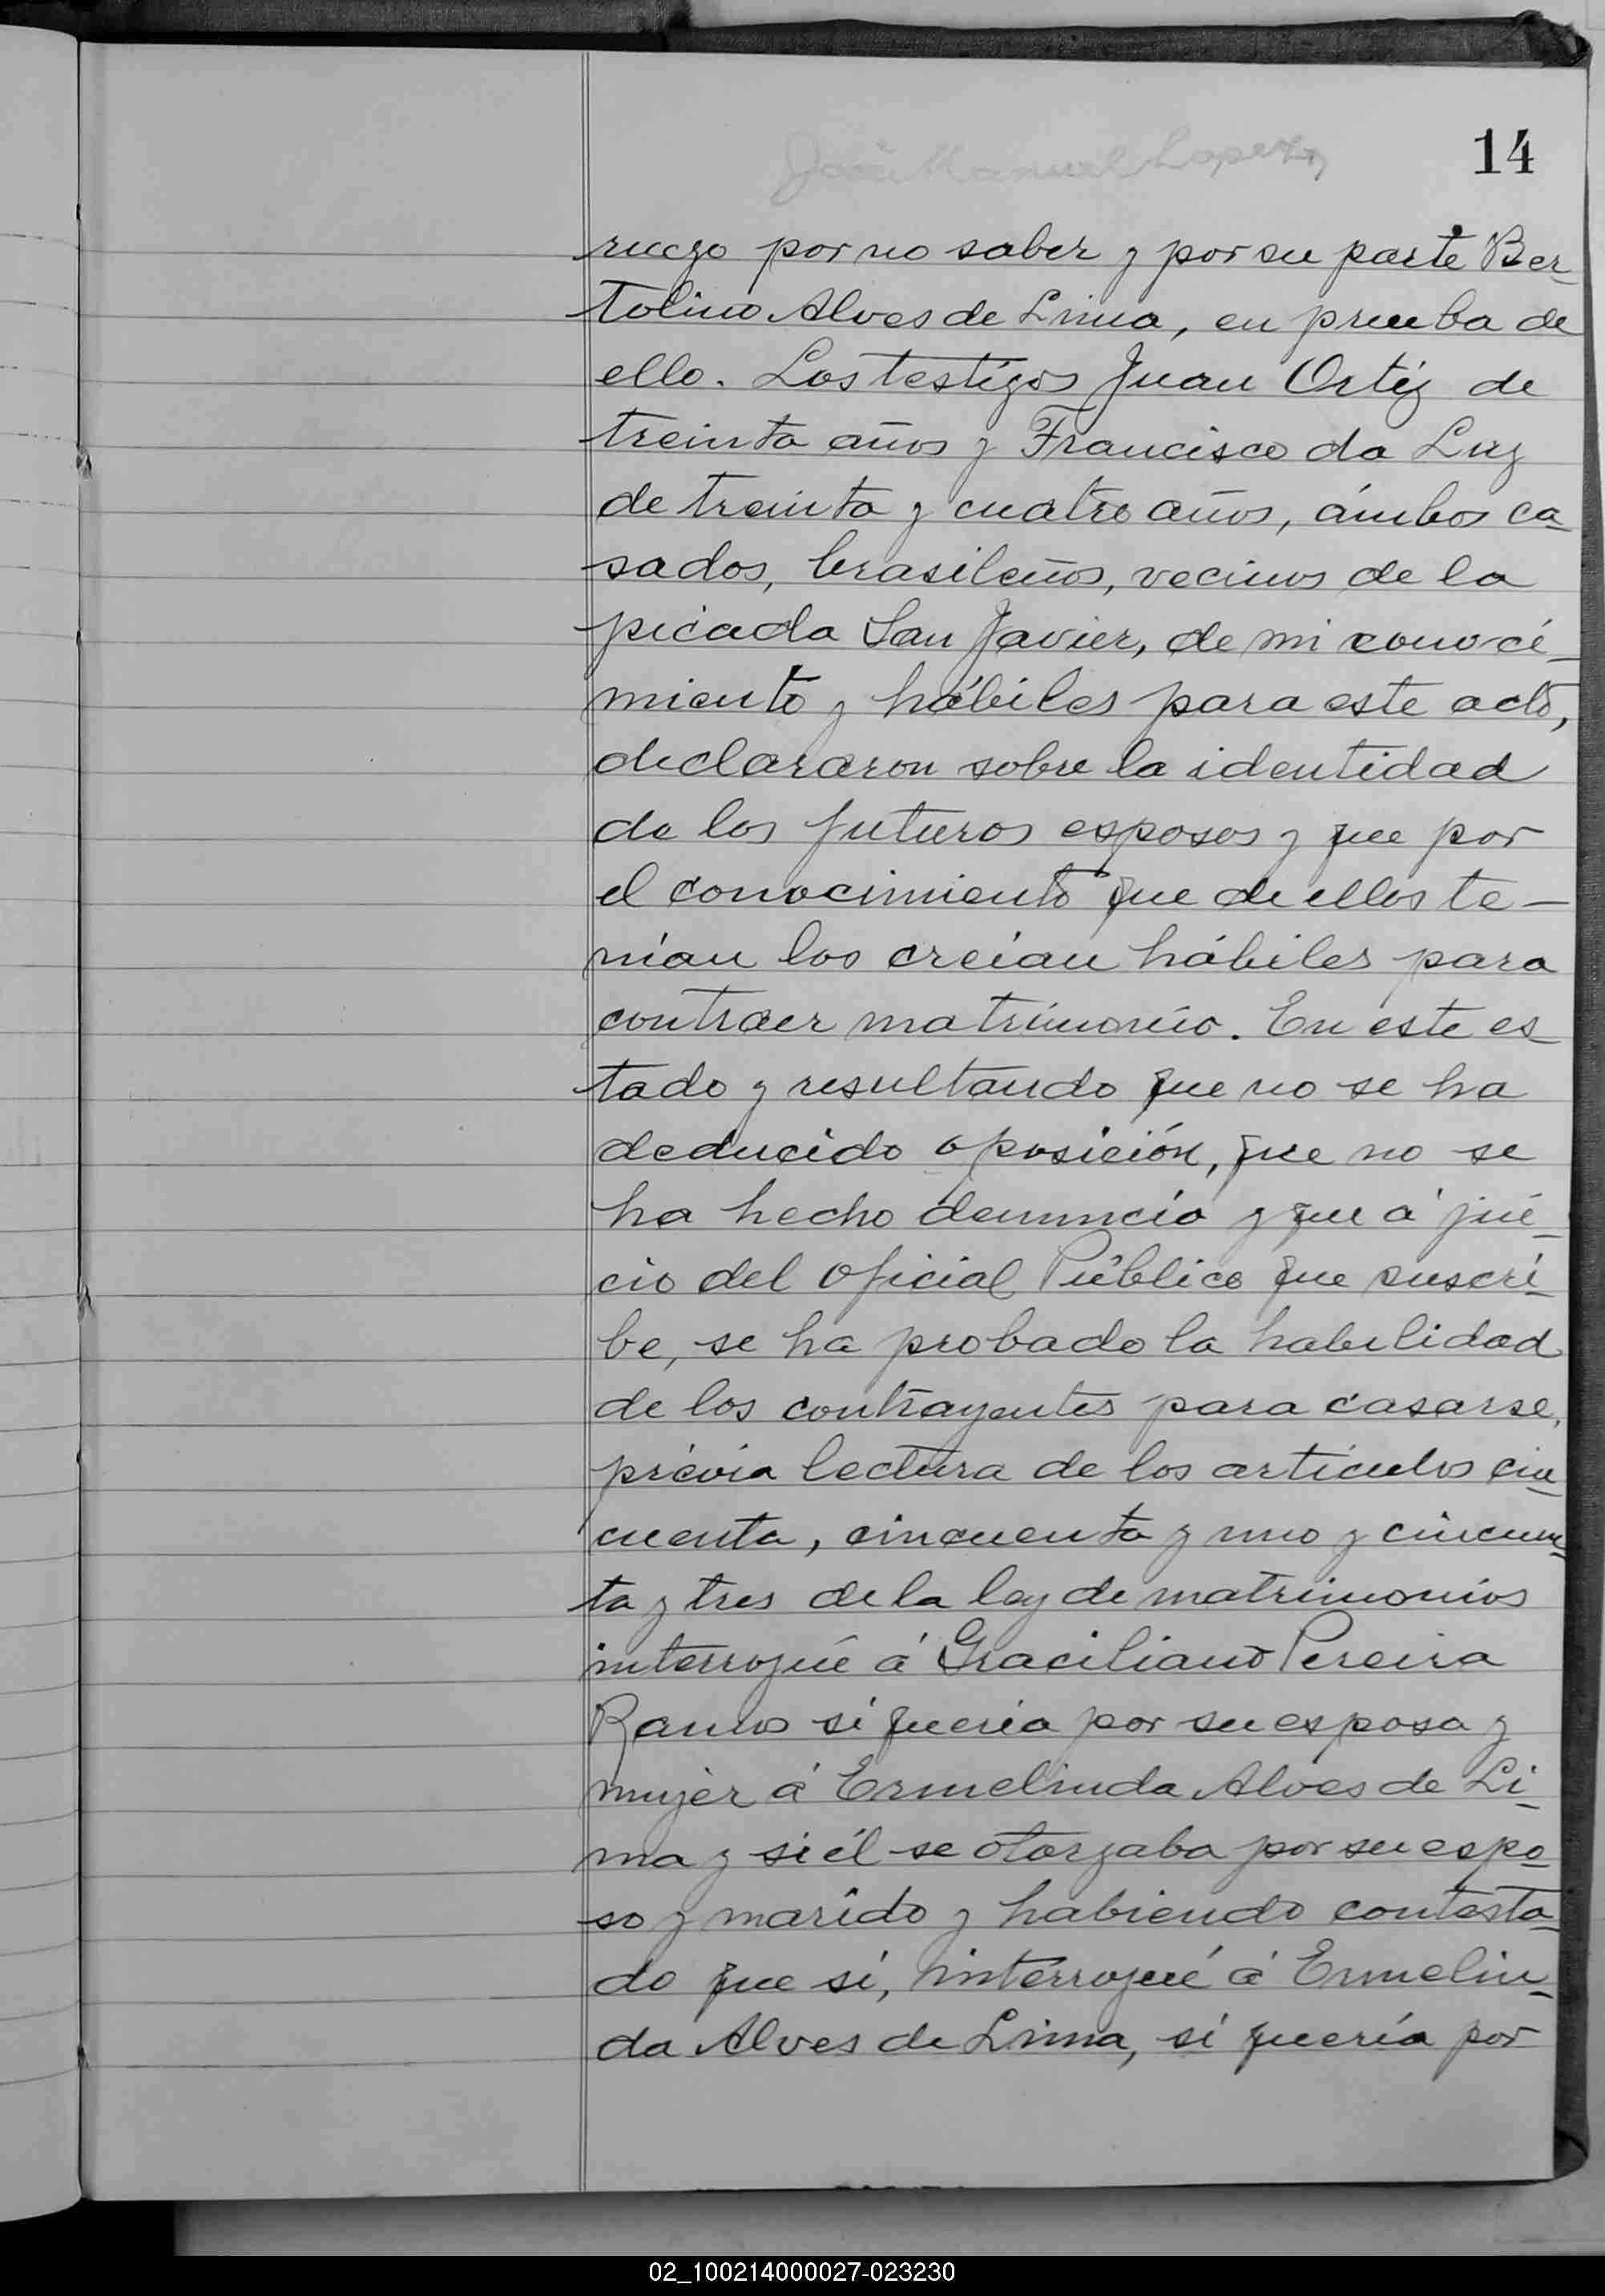 14
José Manuel Lopez
ruego por no saber y por su parte Ber-
tolino Alves de Lima, en prueba de
ello. Los testigos Juan Ortiz de
treinta años y Francisco da Luz
de treinta y cuatro años, ámbos ca-
sados, brasileños, vecinos de la
picada San Javier, de mi conoci-
miento y hábiles para este acto,
declararon sobre la identidad
de los futuros esposos y que por
el conocimiento que de ellos te-
nían los creían hábiles para
contraer matrimonio. En este es-
tado y resultando que no se ha
deducido oposición, que no se
ha hecho denuncia y que á jui-
cio del oficial Público que suscri-
be, se ha probado la habilidad
de los contrayentes para casarse,
prévia lectura de los artículos cin-
cuenta, cincuenta y uno y cincuen-
ta y tres de la ley de matrimonios
interrogué á Graciliano Pereira
Ramos si quería por su esposa y
mujer á Ermelinda Alves de Li-
ma y si él se otorgaba por su espo-
so y marido y habiendo contesta-
do que si, interrogué á Ermelin-
da Alves de Lima, si quería por
02_100214000027-023230